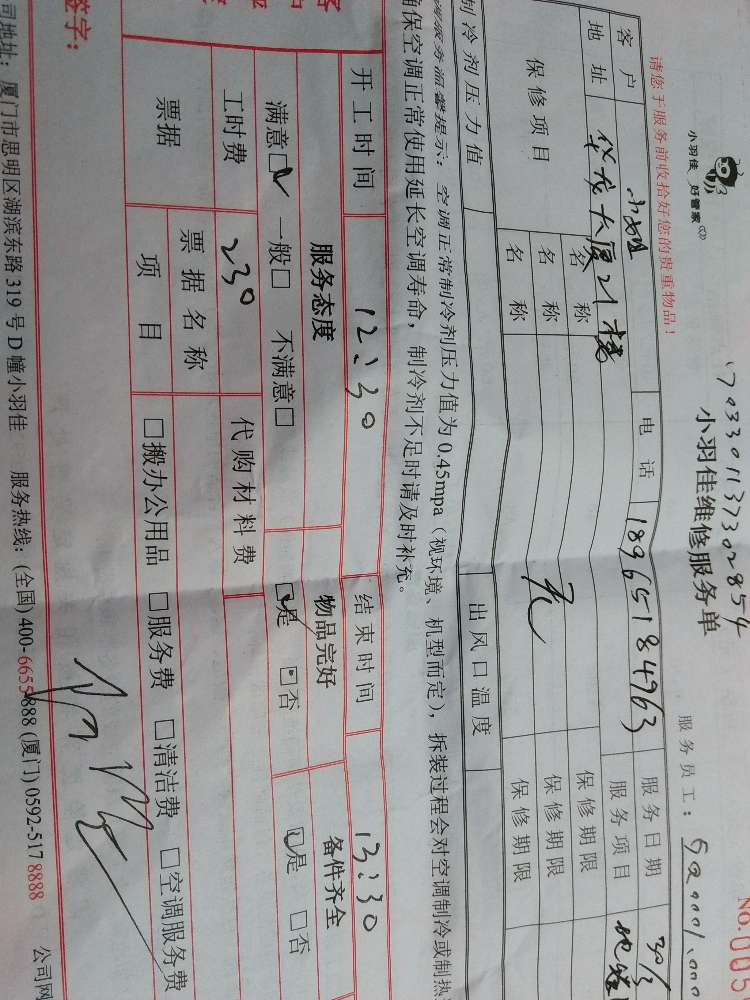 小羽佳 好管家
请您于服务前收拾好您的贵重物品！
17033011373028 54
小羽佳维修服务单
NO.005
服务员工：
客户
电话 18965184963
服务日期 30/3
地址 华龙大厦21楼
服务项目
保修项目
名称
保修期限
名称 无
保修期限
名称
保修期限
制冷剂压力值
出风口温度
服务温馨提示：空调正常制冷剂压力值为0.45mpa（视环境、机型而定），拆装过程会对空调制冷或制热
确保空调正常使用延长空调寿命，制冷剂不足时请及时补充。
开工时间 12:30 结束时间 13:30
服务态度 物品完好 备件齐全
满意□ 一般□ 不满意□ □是 □否 □是 □否
工时费 230 代购材料费
票据 票据名称
项目 □搬办公用品 □服务费 □清洁费 □空调服务费
签字：
司地址：厦门市思明区湖滨东路319号D幢小羽佳 服务热线：(全国)400-6655888 (厦门)0592-517 8888 公司网